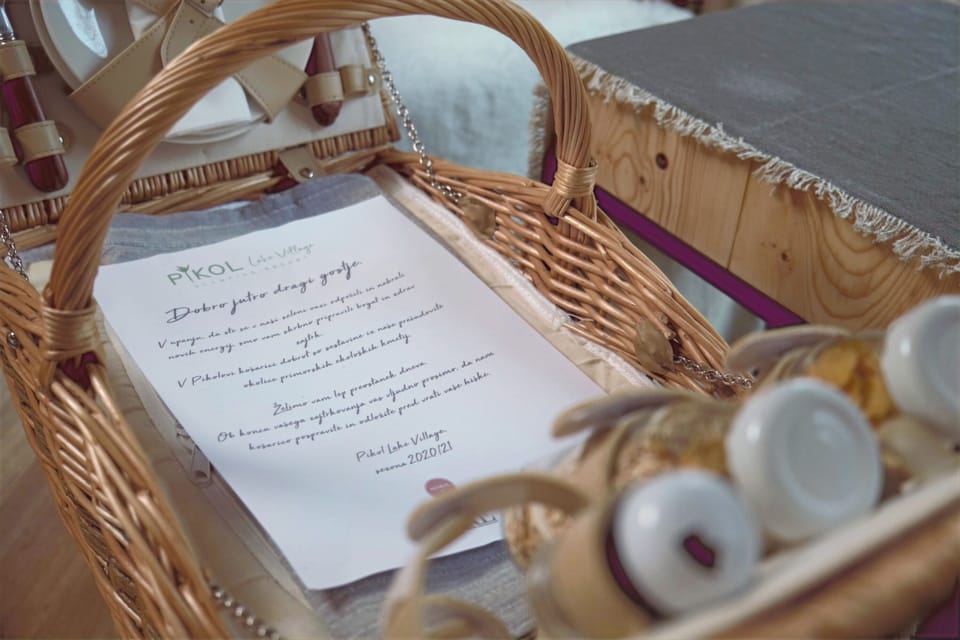 PIKOL Lake Village
GLAMPING RESORT
Dobro jutro dragi gostje.
V upanju, da ste se v naši zeleni oazi odpočili in nabrali
novih energij, smo vam skrbno pripravili bogat in zdrav
zajtrk.
V Pikolovi košarici dobrot so sestavine iz naše prečudovite
okolice primorskih ekoloških kmetij.
Želimo vam lep preostanek dneva.
Ob koncu vašega zajtrkovanja vas vljudno prosimo, da nam
košarico pospravite in odložite pred vrati vaše hiške.
Pikol Lake Village,
sezona 2020/21